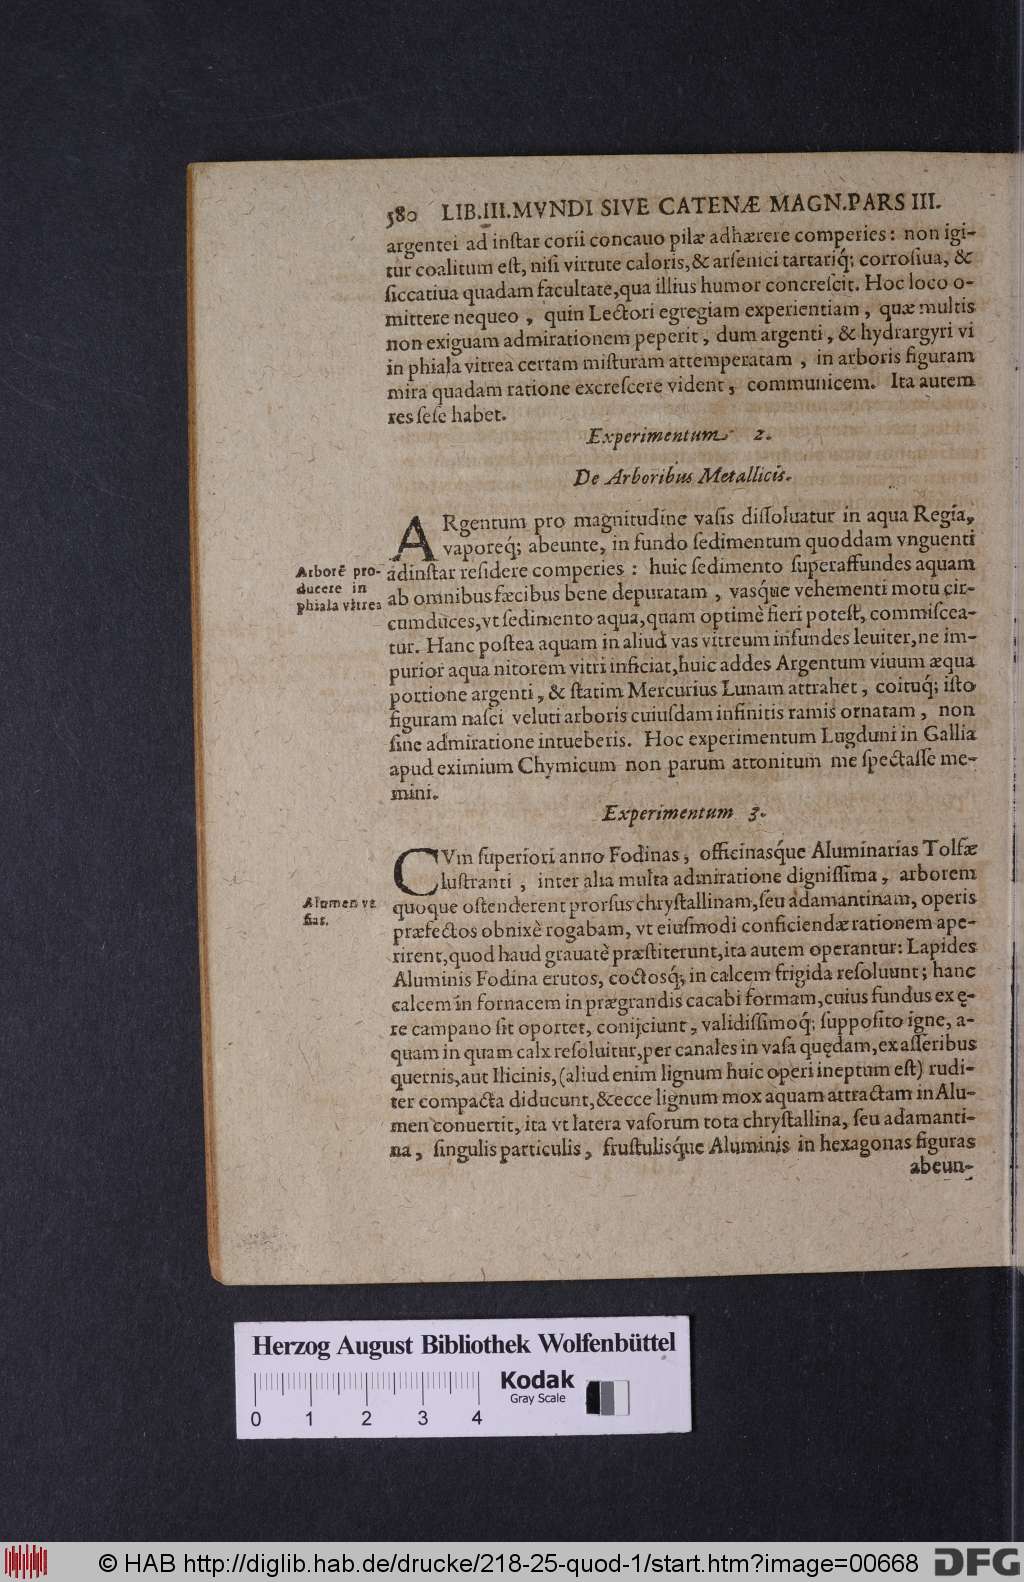 580 LIB.III.MVNDI SIVE CATENÆ MAGN.PARS III.
argentei ad inſtar corii concauo pilæ adhærere comperies: non igi-
tur coalitum eſt, niſi virtute caloris, & arſenici tartariq́; corroſiua, &
ſiccatiua quadam facultate, qua illius humor concreſcit. Hoc loco o-
mittere nequeo, quin Lectori egregiam experientiam, quæ multis
non exiguam admirationem peperit, dum argenti, & hydrargyri vi
in phiala vitrea certam miſturam attemperatam, in arboris figuram
mira quadam ratione excreſcere vident, communicem. Ita autem
res ſeſe habet.
Experimentum 2.
De Arboribus Metallicis.
ARgentum pro magnitudine vaſis diſſoluatur in aqua Regia,
vaporeq́; abeunte, in fundo ſedimentum quoddam vnguenti
Arborē pro-
ducere in
phiala vitrea
adinſtar reſidere comperies: huic ſedimento ſuperaffundes aquam
ab omnibus fæcibus bene depuratam, vasq́ue vehementi motu cir-
cumduces, vt ſedimento aqua, quam optimè fieri poteſt, commiſcea-
tur. Hanc poſtea aquam in aliud vas vitreum infundes leuiter, ne im-
purior aqua nitorem vitri inficiat, huic addes Argentum viuum æqua
portione argenti, & ſtatim Mercurius Lunam attrahet, coituq́; iſto
figuram naſci veluti arboris cuiuſdam infinitis ramis ornatam, non
ſine admiratione intueberis. Hoc experimentum Lugduni in Gallia
apud eximium Chymicum non parum attonitum me ſpectaſſe me-
mini.
Experimentum 3.
CVm ſuperiori anno Fodinas, officinasq́ue Aluminarias Tolfæ
luſtranti, inter alia multa admiratione digniſſima, arborem
Alumen vt
fiat.
quoque oſtenderent prorſus chryſtallinam, ſeu adamantinam, operis
præfectos obnixè rogabam, vt eiuſmodi conficiendæ rationem ape-
rirent, quod haud grauatè præſtiterunt, ita autem operantur: Lapides
Aluminis Fodina erutos, coctosq́; in calcem frigida reſoluunt; hanc
calcem in fornacem in prægrandis cacabi formam, cuius fundus ex ę-
re campano ſit oportet, conijciunt, validiſſimoq́; ſuppoſito igne, a-
quam in quam calx reſoluitur, per canales in vaſa quędam, ex aſſeribus
quernis, aut Ilicinis, (aliud enim lignum huic operi ineptum eſt) rudi-
ter compacta diducunt, & ecce lignum mox aquam attractam in Alu-
men conuertit, ita vt latera vaſorum tota chryſtallina, ſeu adamanti-
na, ſingulis particulis, fruſtulisq́ue Aluminis in hexagonas figuras
abeun-
Herzog August Bibliothek Wolfenbüttel
Kodak
Gray Scale
0 1 2 3 4
© HAB http://diglib.hab.de/drucke/218-25-quod-1/start.htm?image=00668
DFG